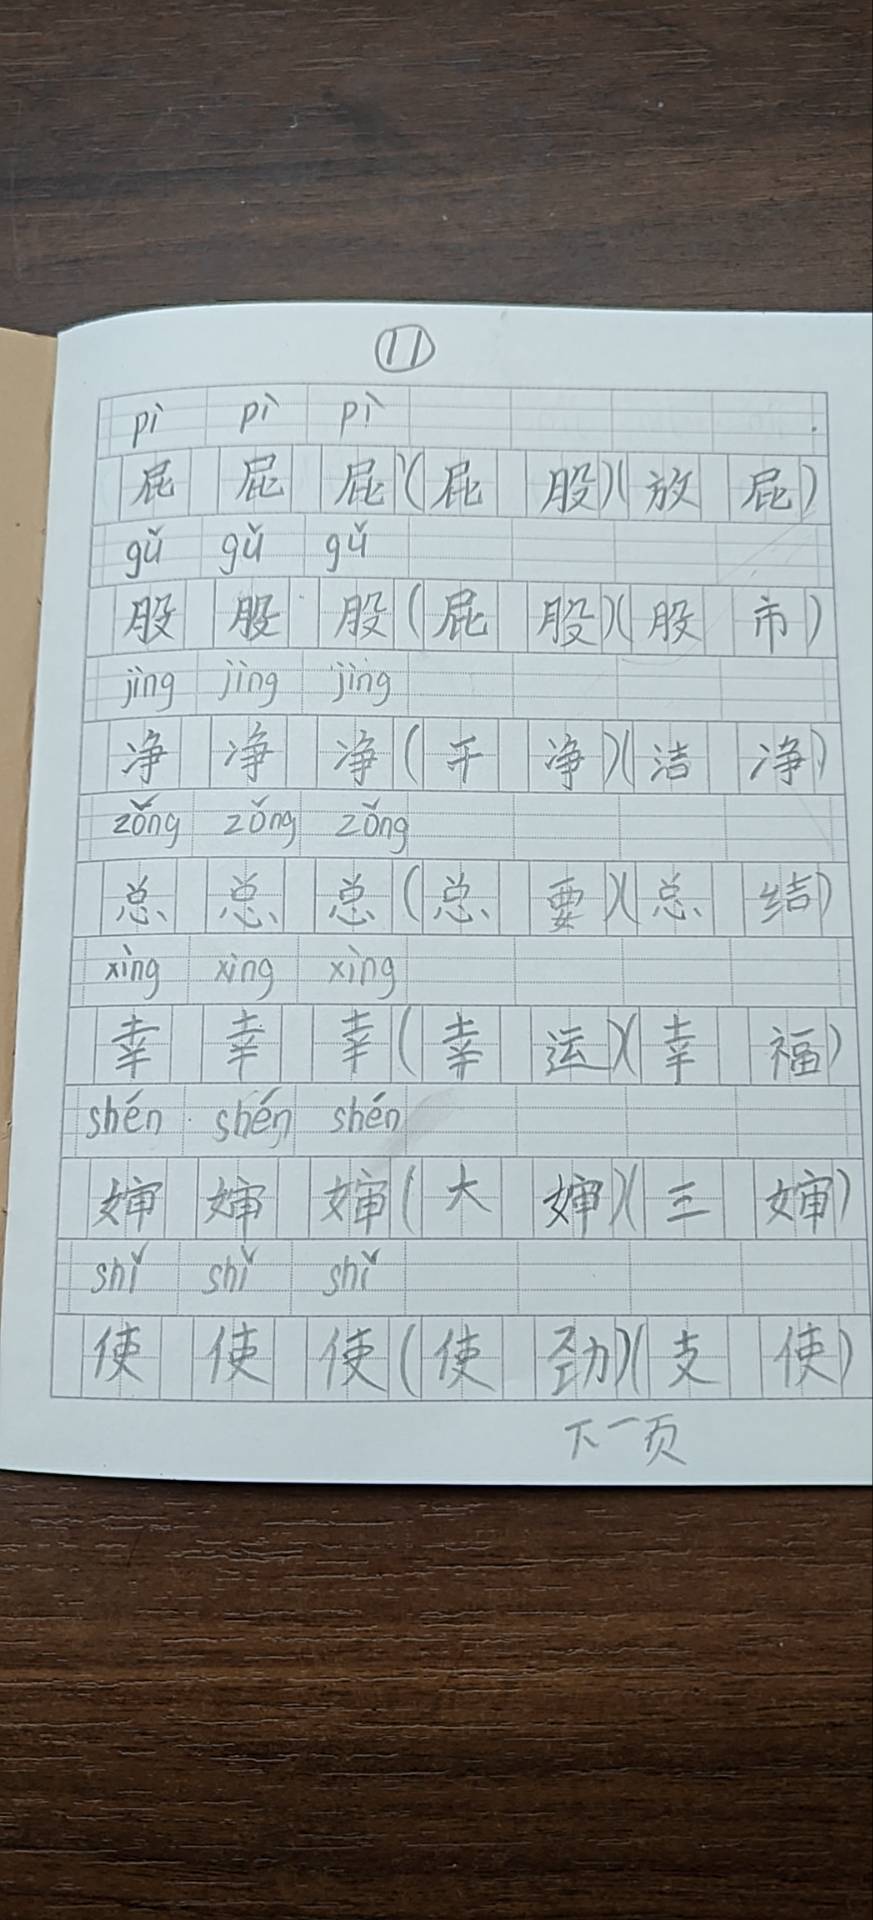 11
pì pì pì
屁 屁 屁 (屁 股)(放 屁)
gǔ gǔ gǔ
股 股 股 (屁 股)(股 市)
jìng jìng jìng
净 净 净 (干 净)(洁 净)
zǒng zǒng zǒng
总 总 总 (总 要)(总 结)
xìng xìng xìng
幸 幸 幸 (幸 运)(幸 福)
shén shén shén
婶 婶 婶 (大 婶)(三 婶)
shǐ shǐ shǐ
使 使 使 (使 劲)(支 使)
下一页